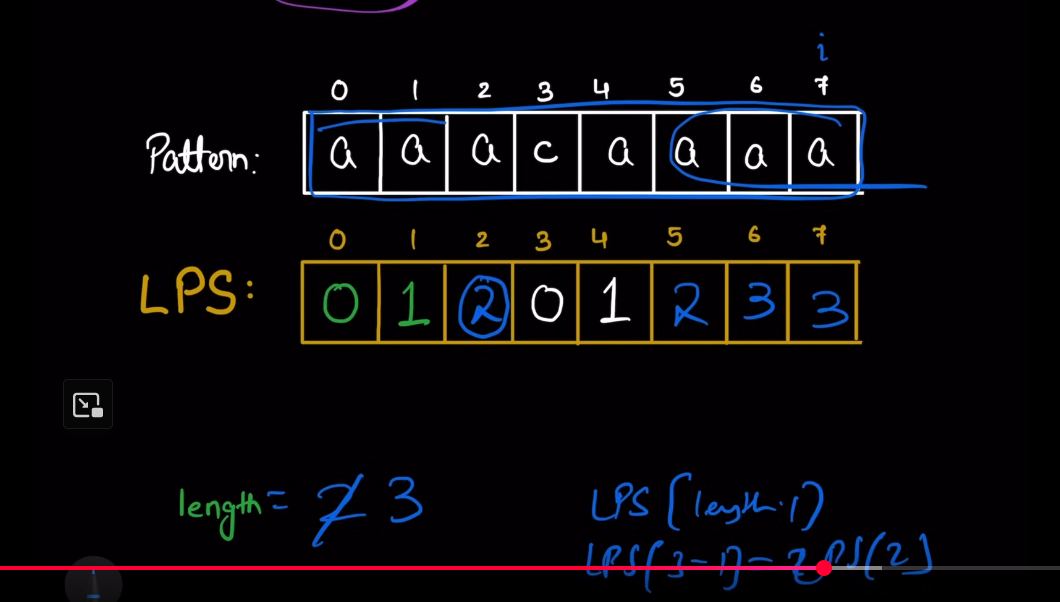 i
0 1 2 3 4 5 6 7
Pattern: a a a c a a a a
0 1 2 3 4 5 6 7
LPS: 0 1 2 0 1 2 3 3
length = 2 3
LPS[length-1]
LPS[3-1] = LPS[2]